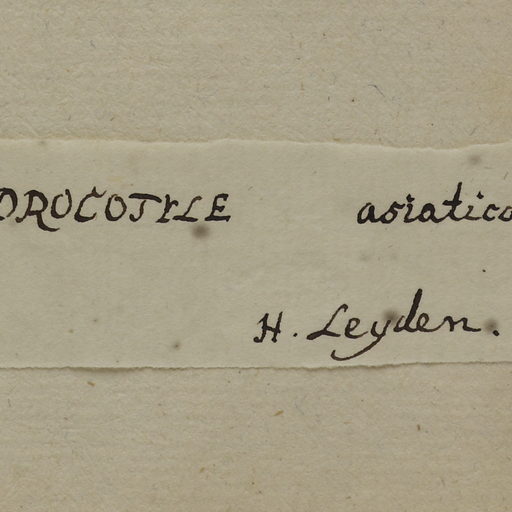 DROCOTYLE asiatica
H. Leyden.